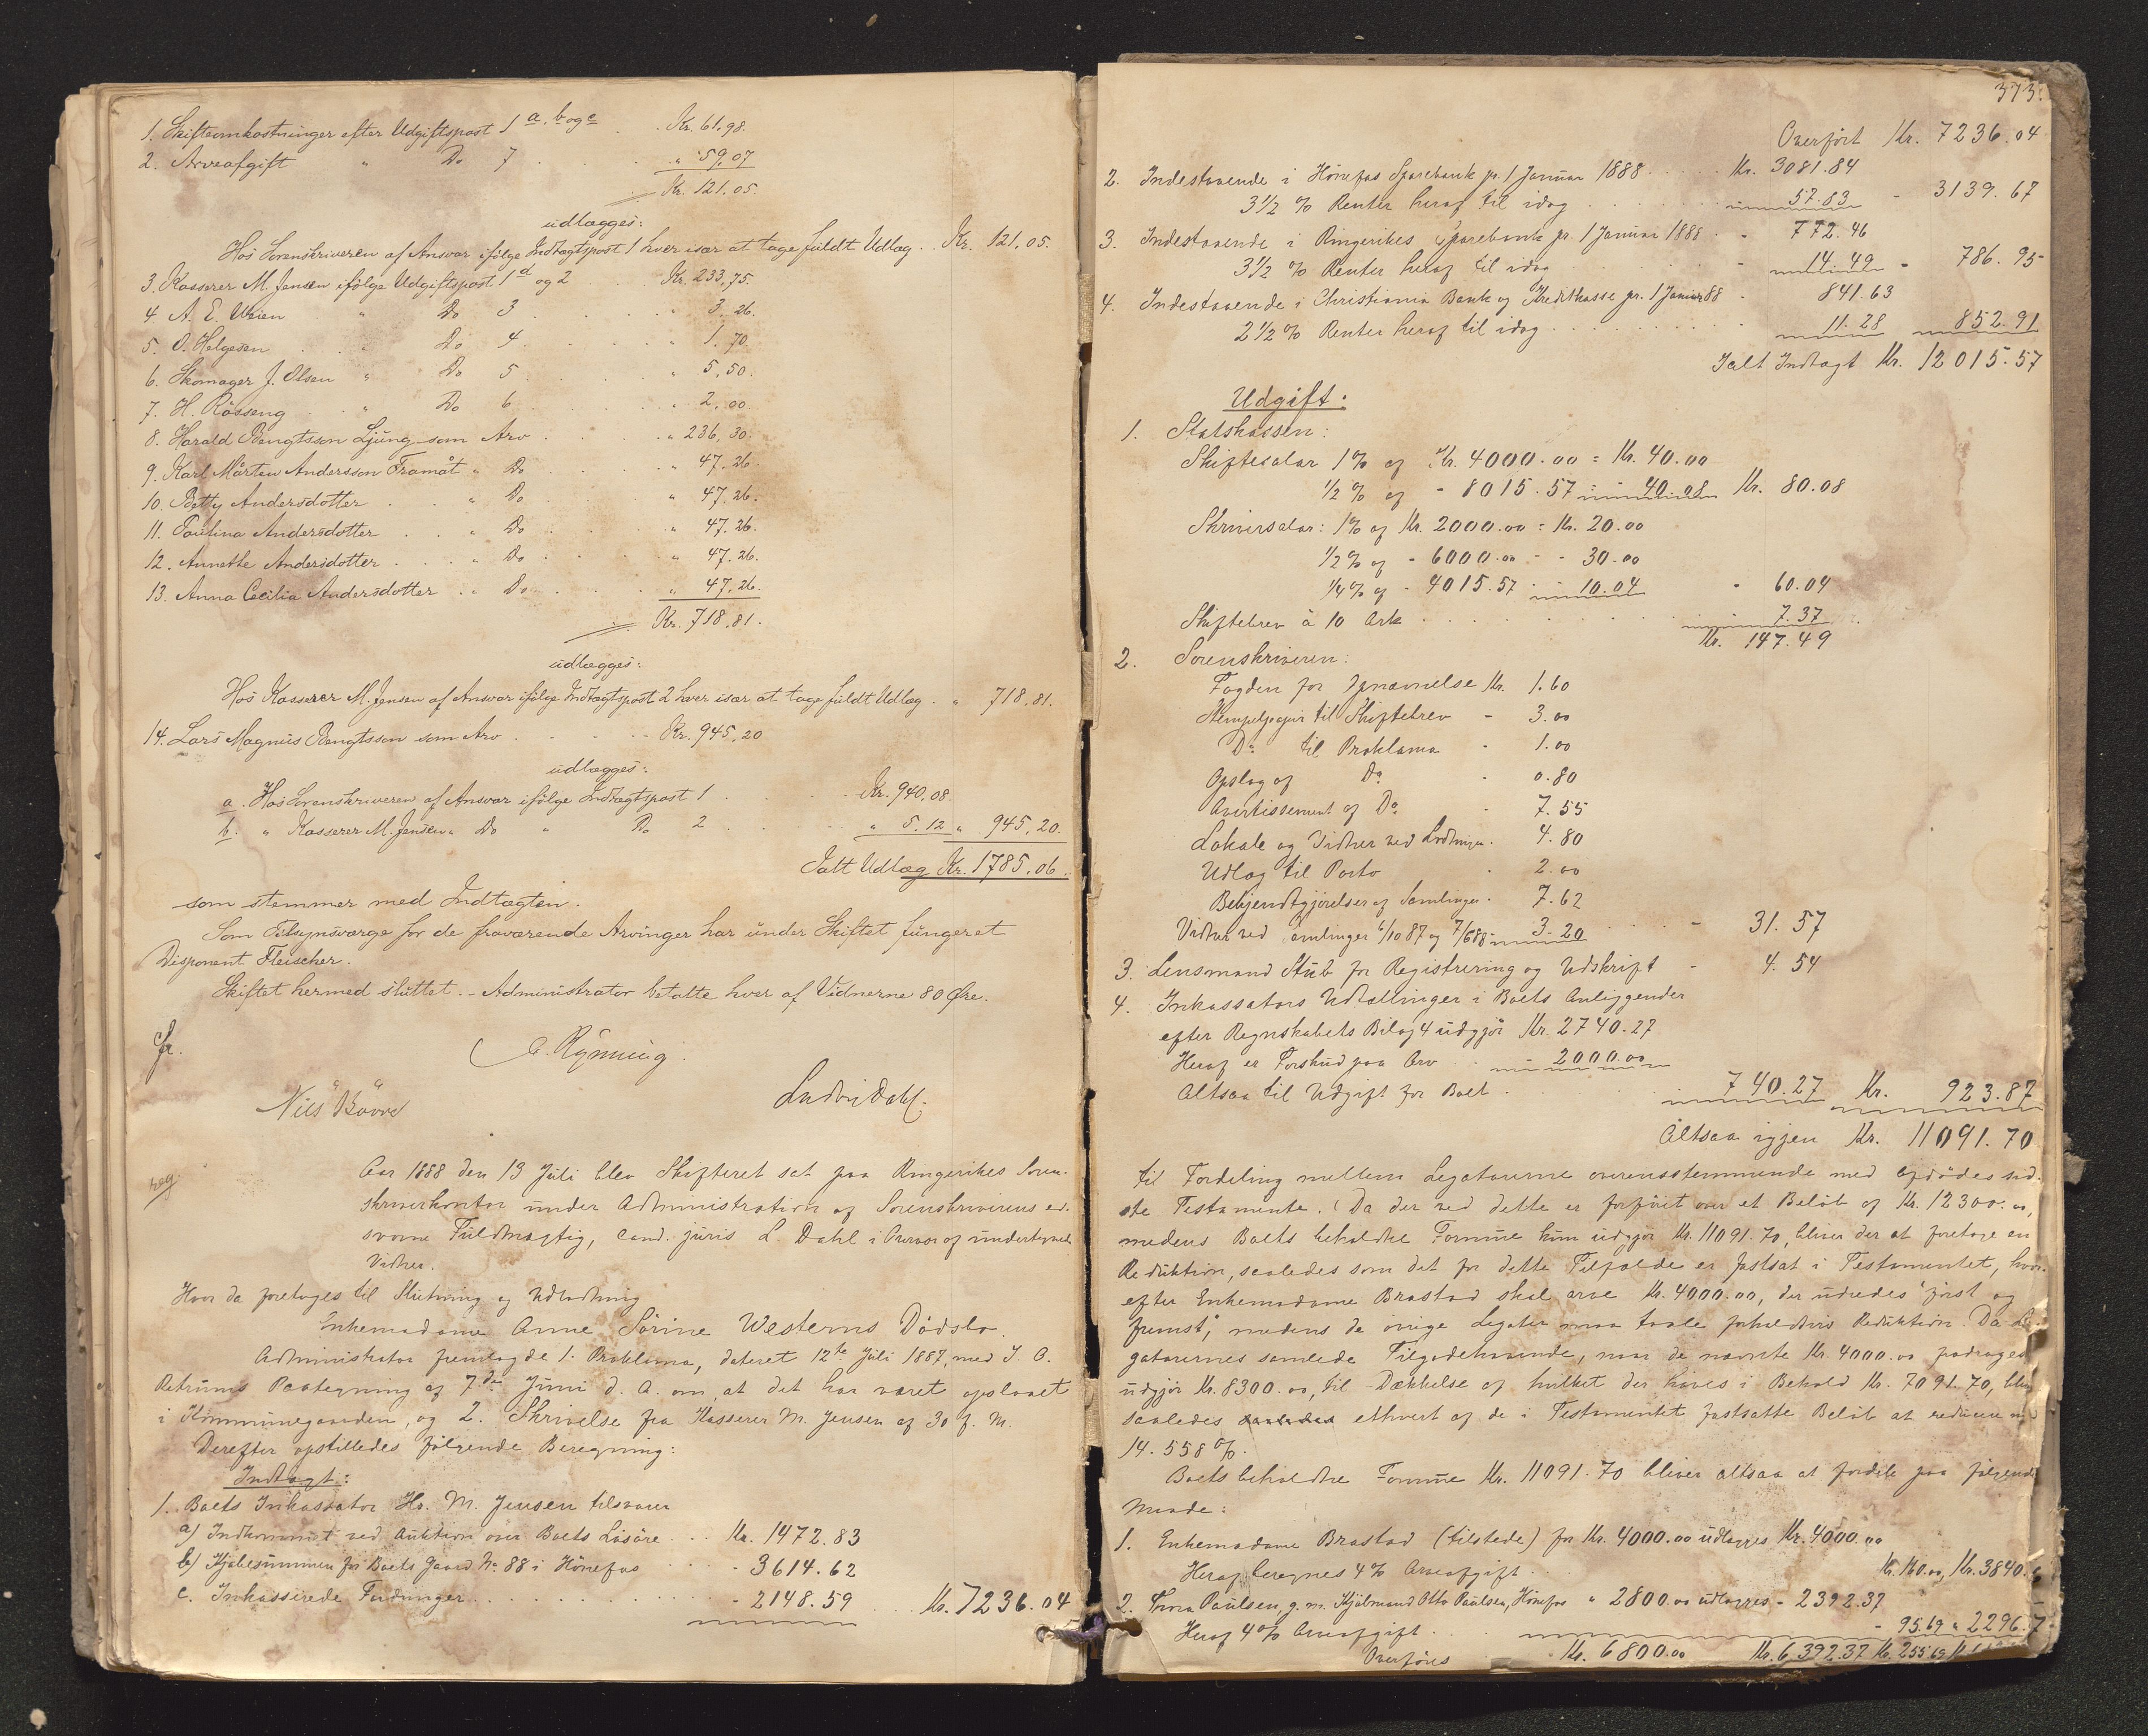 1. Skifteomkostninger efter Udgiftspost 1 a. b og c . Kr. 61.98.
2. Arveafgift " Do 7 . . . " 59,07
Kr. 121.05.
udlægges:
Hos Sorenskriveren af Ansvar ifølge Indtægtspost 1 hver især at tage fuldt Udlæg . . Kr. 121,05.
3. Kasserer M. Jensen ifølge Udgiftspost 1 d og 2 . . Kr. 233,75.
4 A. E. Weien " Do 3 . . . " 3.26.
5. O. Helgesen . . " Do 4 . . . " 1.70.
6. Skomager J. Olsen " Do 5 . . . " 5,50.
7. H. Rösseng . . " Do 6 . . . " 2,00
8. Harald Bengtsson Ljung som Arv . . . " 236,30.
9. Karl Mårten Andersson Framåt " Do . . . " 47.26.
10. Betty Andersdotter . . " Do . . . " 47.26.
11. Paulina Andersdotter . . " Do . . . " 47.26.
12. Annethe Andersdotter . . . " Do . . . " 47.26.
13. Anna Cecilia Andersdotter . . Do . . . " 47,26.
Kr. 718,81.
udlægges:
Hos Kasserer M. Jensen af Ansvar ifølge Indtægtspost 2 hver især at tage fuldt Udlæg . " 718,81.
14. Lars Magnus Bengtsson som Arv . . . Kr. 945,20
udlægges:
a. Hos Sorenskriveren af Ansvar ifølge Indtægtspost 1 . . . Kr. 940,08.
b. " Kasserer M. Jensen " Do " Do 2 . . . " 5.12 " 945,20.
Ialt Udlæg Kr. 1785,06.
som stemmer med Indtægten.
Som Tilsynsværge for de fraværende Arvinger har under Skiftet fungeret
Disponent Fleischer.
Skiftet hermed sluttet. - Administrator betalte hver af Vidnerne 80 Øre.
C. Rynning.
Nils Bövre Ludvi Dahl.
Aar 1888 den 13 Juli blev Skifteret sat paa Ringerikes Soren-
skriverkontor under Administration af Sorenskriverens ed-
svorne Fuldmægtig, cand. juris L. Dahl i Overvær af undertegnede
Vidner.
Hvor da foretoges til Slutning og Udlodning
Enkemadame Anne Sörine Westerns Dödsbo.
Administrator fremlagde 1. Proklama, dateret 12te Juli 1887, med J. A.
Retrums Paategning af 7de Juni d. A. om, at det har været opslaaet
i Kommunegaarden, og 2. Skrivelse fra Kasserer M. Jensen af 30 f. M.
Derefter opstilledes følgende Beregning:
Indtægt:
1. Boets Inkassator Hr. M. Jensen tilsvarer
a) Indkommet ved Auktion over Boets Lösöre . . . Kr. 1472.83
b) Kjøbesummen for Boets Gaard No. 88 i Hönefos . . - 3614.62
c. Inkasserede Fordringer . . . - 2148.59 . . Kr. 7236.04
373.
Overført Kr. 7236.04
2. Indestaaende i Hönefos Sparebank pr. 1 Januar 1888 . . . Kr. 3081.84
3 1/2 % Renter heraf til idag . . . 57.83 - 3139.67
3. Indestaaende i Ringerikes Sparebank pr. 1 Januar 1888 . - 772.46
3 1/2 % Renter heraf til idag . . . 14.49 - 786.95
4. Indestaaende i Christiania Bank og Kreditkasse pr. 1 Januar 88 - 841.63
2 1/2 % Renter heraf til idag . . . 11.28 852.91
Ialt Indtægt Kr. 12015.57
Udgift:
1. Statskassen:
Skiftesalær 1 % af Kr. 4000.00 = Kr. 40.00
1/2 % af - 8015.57 - 40.08 Kr. 80.08
Skriversalær: 1 % af Kr. 2000.00 = Kr. 20.00
1/2 % af - 6000.00 - - 30.00
1/4 % af - 4015.57 - - 10.04 - 60.04
Skiftebrev à 10 Ark . . . 7.37
Kr. 147.49
2. Sorenskriveren:
Fogden for Opnævnelse Kr. 1.60
Stempelpapir til Skiftebrev - 3.00
Do til Proklama - 1.00
Opslag af Do - 0.80
Avertissement af Do - 7.55
Lokale og Vidner ved Lodningen - 4.80
Udlæg til Porto - 2.00
Bekjendtgjørelser af Samlinger - 7.62
Vidner ved Samlinger 6/10 87 og 7/6 88 - 3.20 . . . - 31.57
3. Lensmand Stub for Registrering og Udskrift - 4.54
4. Inkassators Udtællinger i Boets Anliggender
efter Regnskabets Bilag 4 udgjør Kr. 2740.27
Heraf er Forskud paa Arv - 2000.00
Altsaa til Udgift for Boet . . . 740.27 Kr. 923.87
Altsaa igjen Kr. 11091.70
til Fordeling mellem Legatarerne overensstemmende med Afdödes sid-
ste Testamente. Da der ved dette er forføiet over et Beløb af Kr. 12300.00,
medens Boets beholdne Formue kun udgjør Kr. 11091.70, bliver der at foretage en
Reduktion, saaledes som det for dette Tilfælde er fastsat i Testamentet, hvor-
efter Enkemadame Brastad skal arve Kr. 4000.00, der udredes "først og
fremst", medens de øvrige Legater maa taale forholdsvis Reduktion. Da Le-
gatarernes samlede Tilgodehavende, naar de nævnte Kr. 4000.00 fradrages
udgjør Kr. 8300.00, til Dækkelse af hvilket der haves i Behold Kr. 7091.70, bliver
saaledes ethvert af de i Testamentet fastsatte Beløb at reducere med
14.558 %.
Boets beholdne Formue Kr. 11091.70 bliver altsaa at fordele paa følgende
Maade:
1. Enkemadame Brastad (tilstede) for Kr. 4000.00 udlægges Kr. 4000.00
Heraf beregnes 4 % Arveafgift . . Kr. 160.00, Kr. 3840.
2. Paulsen, g. m. Hjalmand Otto Paulsen, Hönefos " 2800.00 udlægges - 2392.37
Heraf 4 % Arveafgift . . . - 95.69 " 2296.
Overføres Kr. 6800.00 Kr. 6392.37 Kr. 255.69